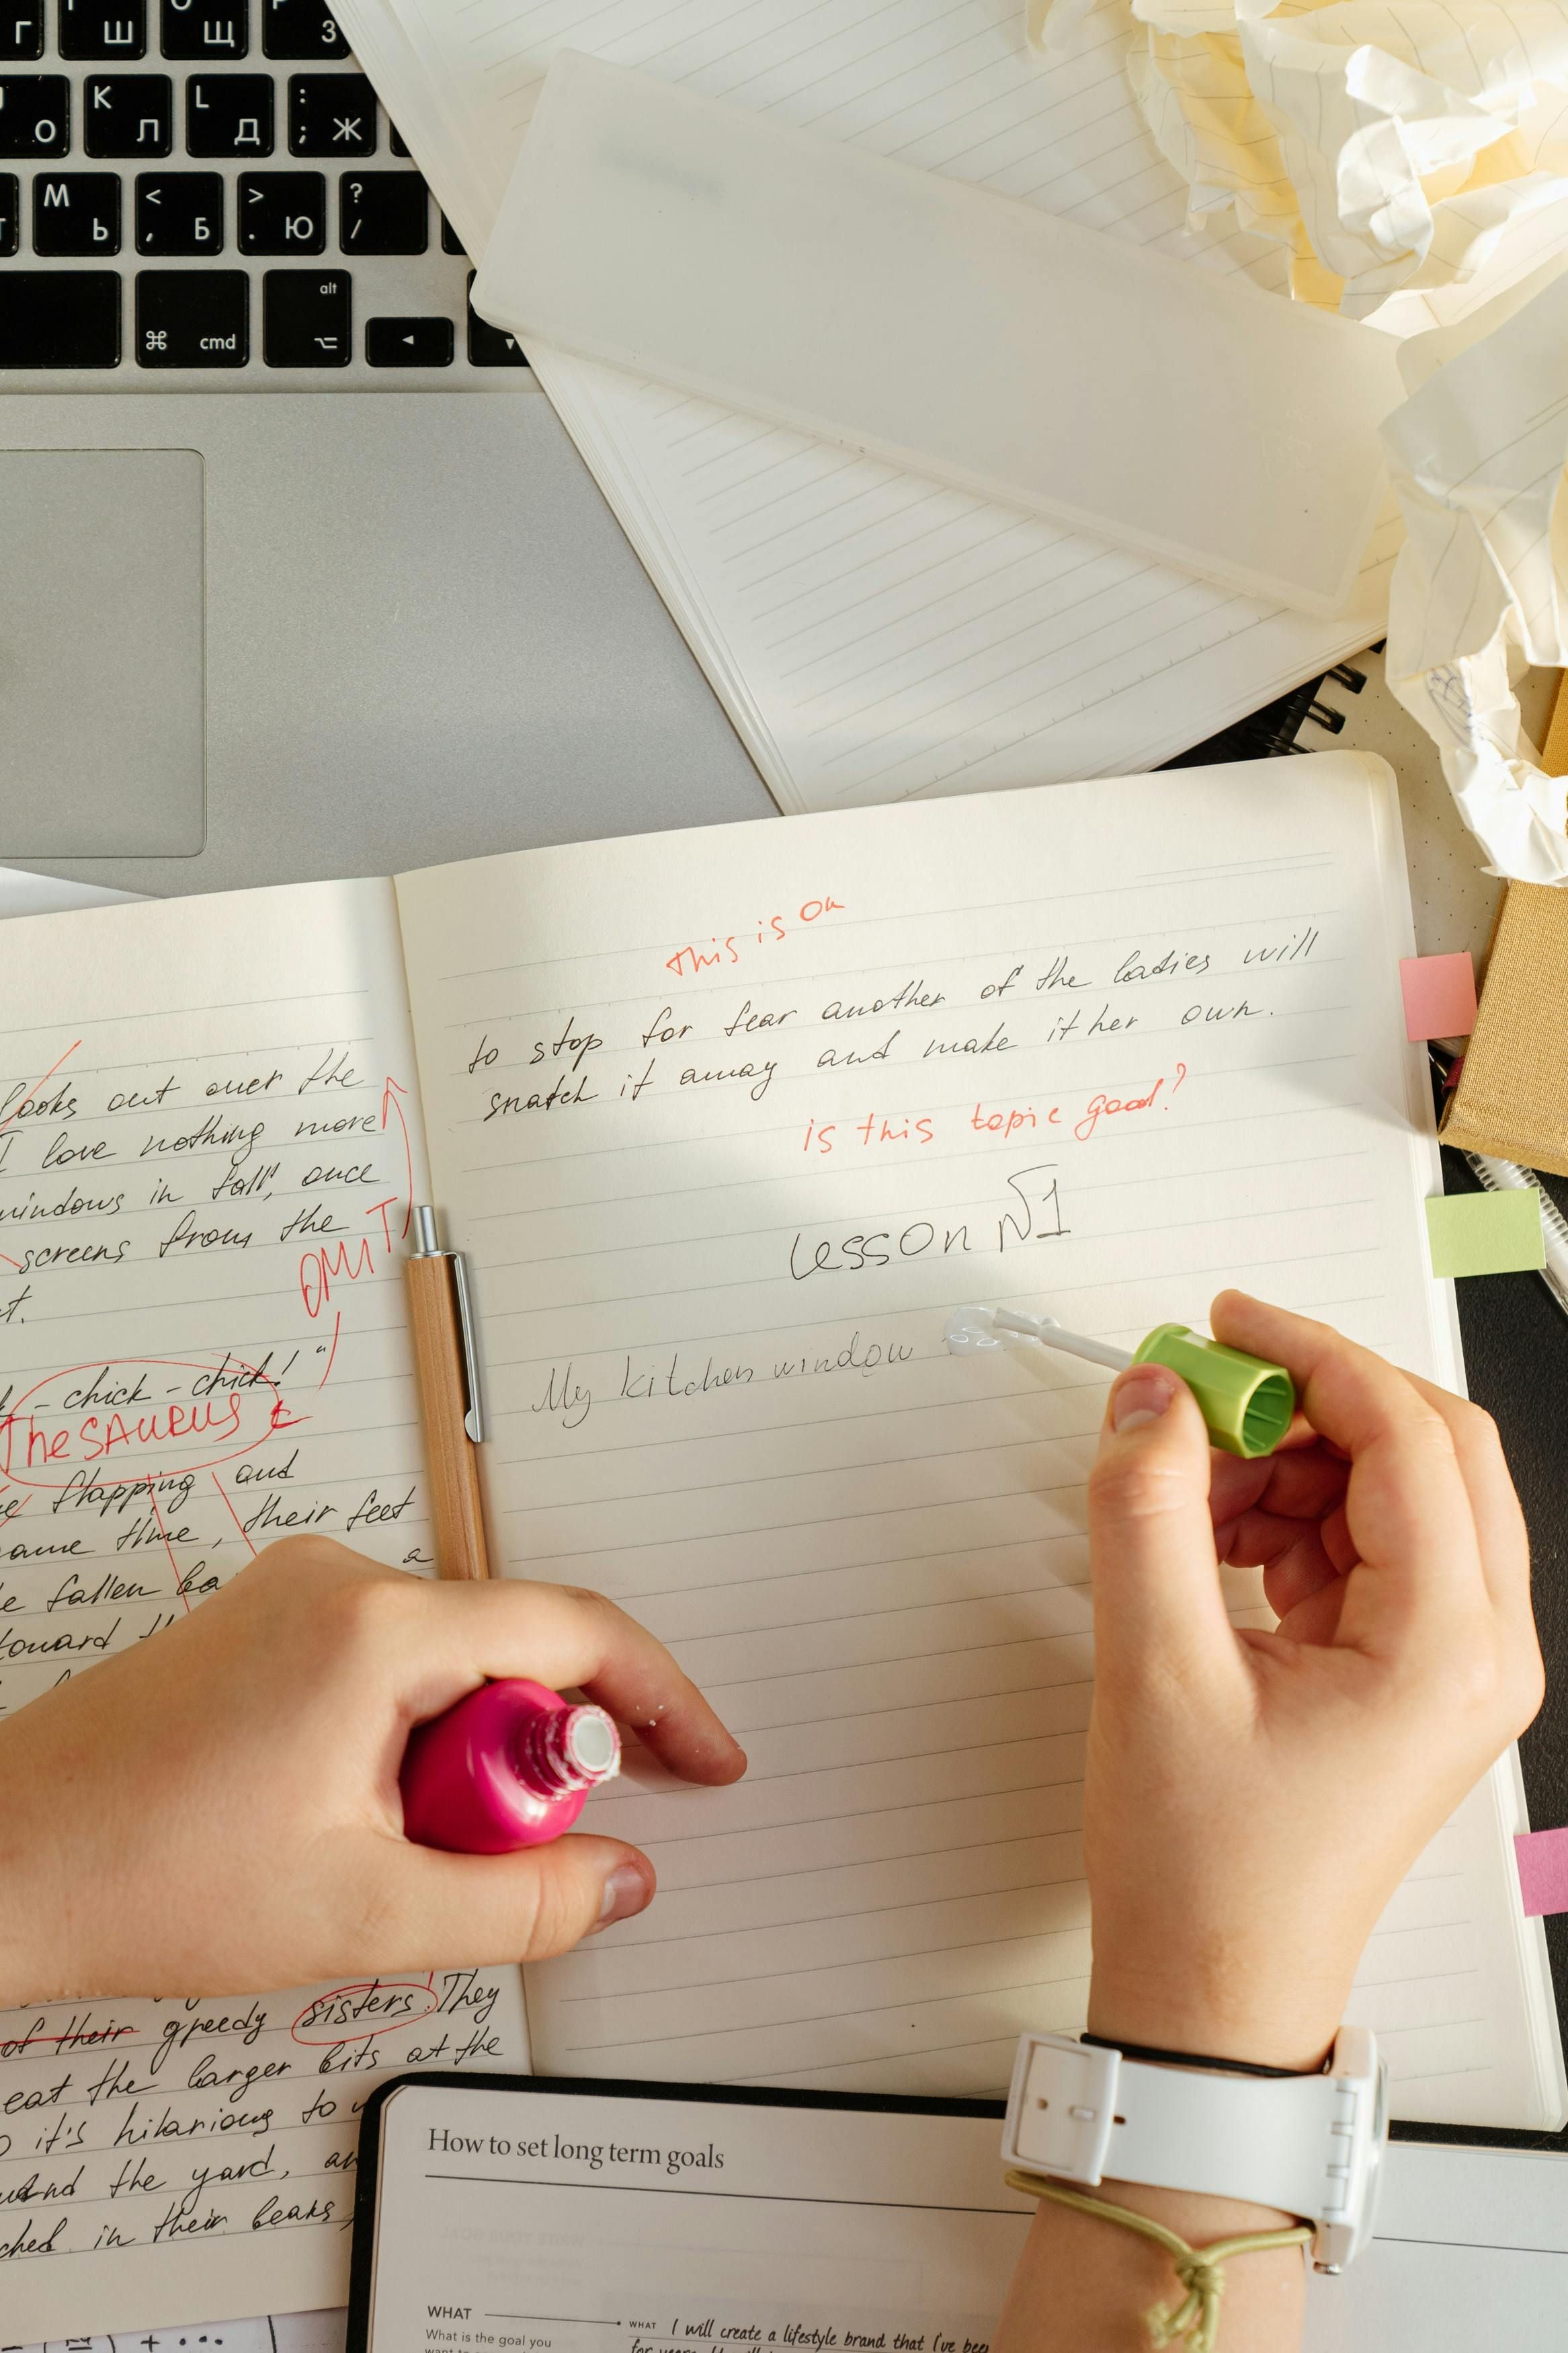 Г Ш Щ З
О K Л L Д : ; Ж
M Ь < , Б > . Ю ? /
⌘ cmd alt ⌥ ◄ ▼
looks out over the
I love nothing more
windows in fall, once
screens from the
OMIT
chick - chick! "
TheSAURUS
flapping and
same time, their feet
a
fallen
toward
of their greedy sisters. They
eat the larger bits at the
it's hilarious to
the yard,
in their beaks,
this is on
to stop for fear another of the ladies will
snatch it away and make it her own.
is this topic good?
Lesson №1
My kitchen window
How to set long term goals
WHAT
What is the goal you
WHAT I will create a lifestyle brand that I've been